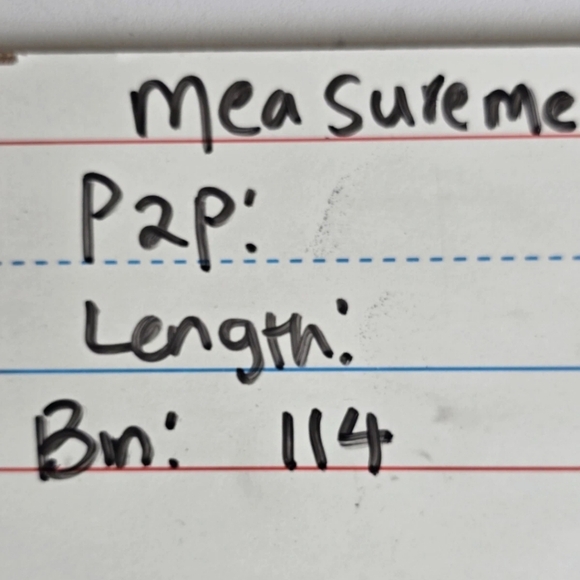 Measureme
P2P:
Length:
Bn: 114